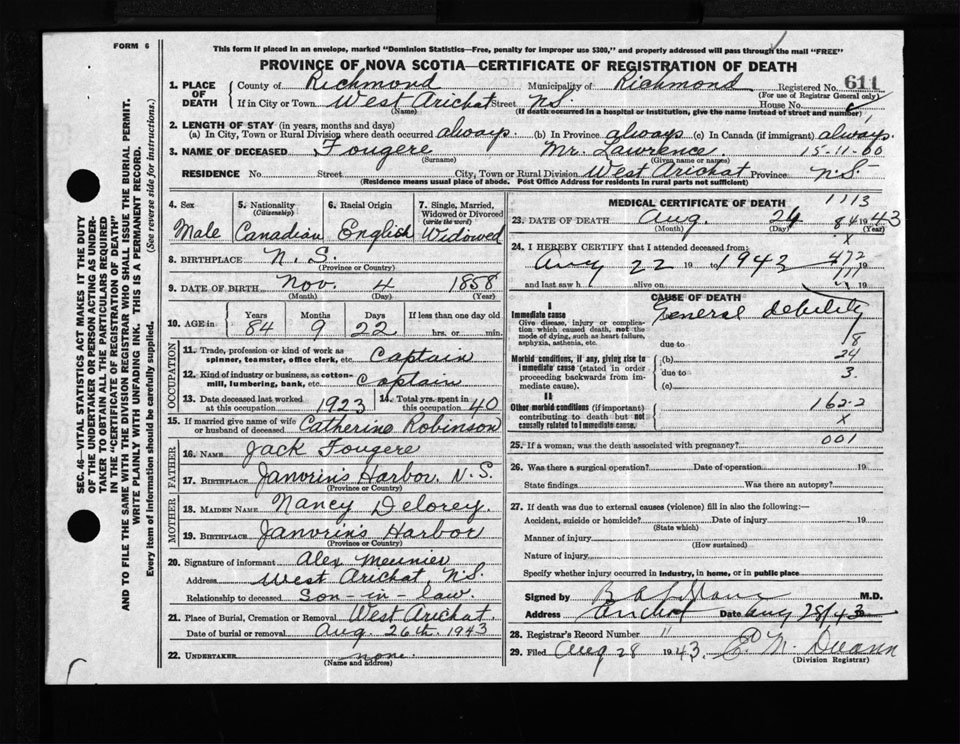 FORM 6
This form if placed in an envelope, marked "Dominion Statistics—Free, penalty for improper use $300," and properly addressed will pass through the mail "FREE"
PROVINCE OF NOVA SCOTIA—CERTIFICATE OF REGISTRATION OF DEATH
SEC. 46—VITAL STATISTICS ACT MAKES IT THE DUTY
OF THE UNDERTAKER OR PERSON ACTING AS UNDER-
TAKER TO OBTAIN ALL THE PARTICULARS REQUIRED
IN THE "CERTIFICATE OF REGISTRATION OF DEATH"
AND TO FILE THE SAME WITH THE DIVISION REGISTRAR WHO SHALL ISSUE THE BURIAL PERMIT.
WRITE PLAINLY WITH UNFADING INK. THIS IS A PERMANENT RECORD.
Every item of information should be carefully supplied. (See reverse side for instructions.)
1. PLACE OF DEATH
County of Richmond Municipality of Richmond Registered No. 611
(For use of Registrar General only)
If in City or Town West Arichat Street N.S. House No.
(Name) (If death occurred in a hospital or institution, give the name instead of street and number)
2. LENGTH OF STAY (in years, months and days)
(a) In City, Town or Rural Division where death occurred always. (b) In Province always (c) In Canada (if immigrant) always.
3. NAME OF DECEASED Fougere Mr. Lawrence. 15-11-60
(Surname) (Given name or names)
RESIDENCE No. Street City, Town or Rural Division West Arichat Province N.S.
(Residence means usual place of abode. Post Office Address for residents in rural parts not sufficient)
4. Sex 5. Nationality (Citizenship) 6. Racial Origin 7. Single, Married, Widowed or Divorced (write the word)
Male Canadian English Widowed
8. BIRTHPLACE N.S.
(Province or Country)
9. DATE OF BIRTH Nov. 4 1858
(Month) (Day) (Year)
10. AGE in Years Months Days If less than one day old
84 9 22 hrs. or min.
OCCUPATION
11. Trade, profession or kind of work as spinner, teamster, office clerk, etc. Captain
12. Kind of industry or business, as cotton-mill, lumbering, bank, etc. Captain
13. Date deceased last worked at this occupation 1923 14. Total yrs. spent in this occupation 40
15. If married give name of wife or husband of deceased Catherine Robinson
FATHER
16. NAME Jack Fougere
17. BIRTHPLACE Janvrin's Harbor, N.S.
(Province or Country)
MOTHER
18. MAIDEN NAME Nancy Delorey.
19. BIRTHPLACE Janvrin's Harbor
(Province or Country)
20. Signature of informant Alex Meunier
Address West Arichat, N.S.
Relationship to deceased Son-in-law.
21. Place of Burial, Cremation or Removal West Arichat.
Date of burial or removal Aug. 26th. 1943
22. UNDERTAKER none.
(Name and address)
MEDICAL CERTIFICATE OF DEATH 1113
23. DATE OF DEATH Aug. 84 1943
(Month) (Day) (Year)
x
24. I HEREBY CERTIFY that I attended deceased from:
Aug 22 19 to 1943 472 19
and last saw h alive on 111 19
CAUSE OF DEATH
I
Immediate cause General debility
Give disease, injury or complication which caused death, not the mode of dying, such as heart failure, asphyxia, asthenia, etc. due to 8
Morbid conditions, if any, giving rise to immediate cause (stated in order proceeding backwards from immediate cause). (b) 24
due to 3.
(c)
II
Other morbid conditions (if important) contributing to death but not causally related to immediate cause. 162-2
x
25. If a woman, was the death associated with pregnancy? 001
26. Was there a surgical operation? Date of operation 19
State findings Was there an autopsy?
27. If death was due to external causes (violence) fill in also the following:—
Accident, suicide or homicide? Date of injury 19
(State which)
Manner of injury
(How sustained)
Nature of injury
Specify whether injury occurred in industry, in home, or in public place
Signed by M.D.
Address Arichat Date Aug 28/43
28. Registrar's Record Number 11
29. Filed Aug 28 1943.
(Division Registrar)